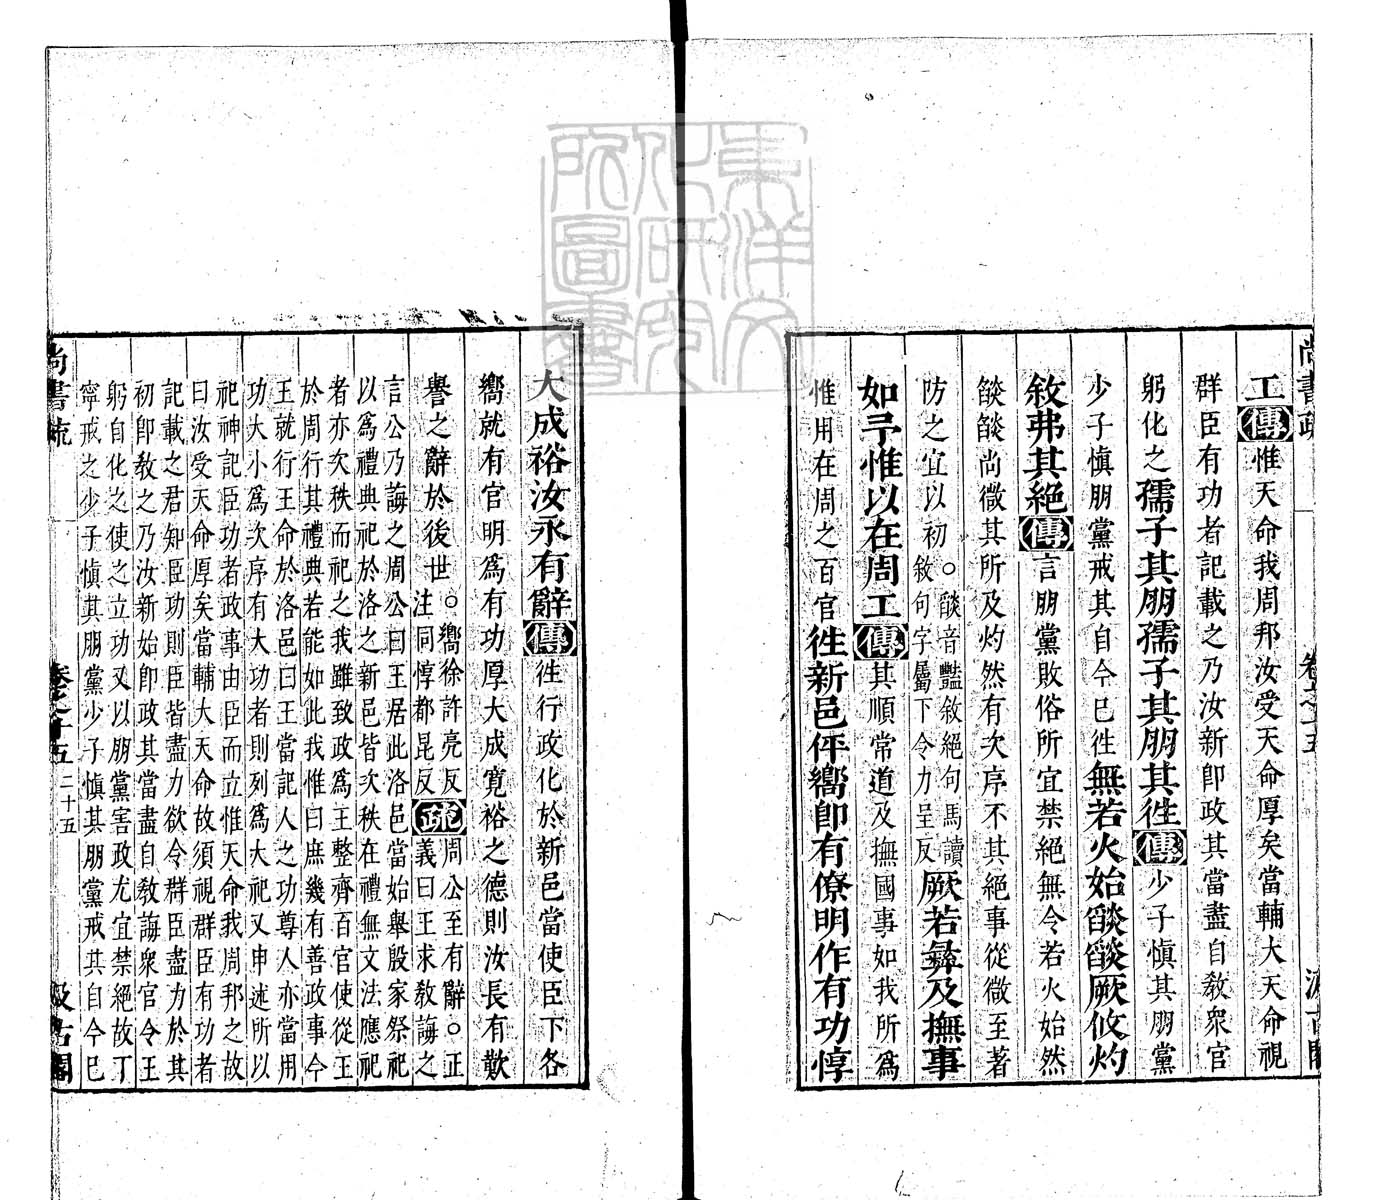 尚書疏 卷之十五 汲古閣
工傳惟天命我周邦汝受天命厚矣當輔大天命視
群臣有功者記載之乃汝新卽政其當盡自敎衆官
躬化之孺子其朋孺子其朋其徃傳少子愼其朋黨
少子愼朋黨戒其自今巳徃無若火始燄燄厥攸灼
敘弗其絶傳言朋黨敗俗所宜禁絕無令若火始然
燄燄尚微其所及灼然有次序不其絕事從微至著
防之宜以初○燄音豔敘絕句馬讀
敘句字屬下令力呈反厥若彝及撫事
如予惟以在周工傳其順常道及撫國事如我所爲
惟用在周之百官徃新邑伻嚮卽有僚明作有功惇
大成裕汝永有辭傳徃行政化於新邑當使臣下各
嚮就有官明爲有功厚大成寬裕之德則汝長有歎
譽之辭於後世○嚮徐許亮反
注同惇都昆反疏周公至有辭○正
義曰王求敎誨之
言公乃誨之周公曰王居此洛邑當始舉殷家祭祀
以爲禮典祀於洛之新邑皆次秩在禮無文法應祀
者亦次秩而祀之我雖致政爲王整齊百官使從王
於周行其禮典若能如此我惟曰庶幾有善政事今
王就行王命於洛邑曰王當記人之功尊人亦當用
功大小爲次序有大功者則列爲大祀又申述所以
祀神記臣功者政事由臣而立惟天命我周邦之故
曰汝受天命厚矣當輔大天命故須視群臣有功者
記載之君知臣功則臣皆盡力欲令群臣盡力於其
初卽敎之乃汝新始卽政其當盡自敎誨衆官令王
躬自化之使之立功又以朋黨害政尤宜禁絕故丁
寧戒之少子愼其朋黨少子愼其朋黨戒其自今巳
尚書疏 卷之十五 二十五 汲古閣
東洋文化研究所圖書